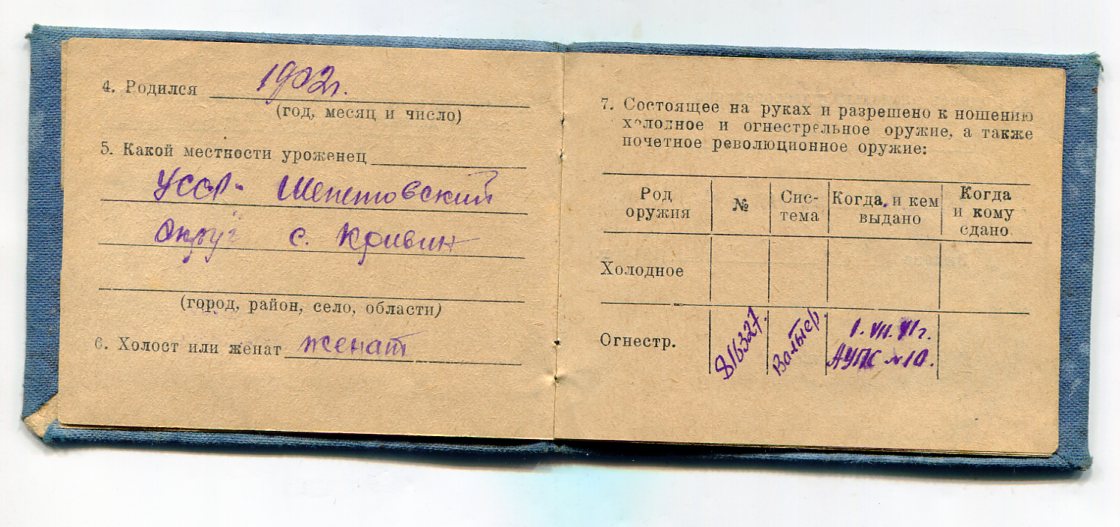 4. Родился 1902г.
(год, месяц и число)
5. Какой местности уроженец
УССР Шепетовский
округ с. Кривин
(город, район, село, области)
6. Холост или женат женат
7. Состоящее на руках и разрешено к ношению
холодное и огнестрельное оружие, а также
почетное революционное оружие:
Род оружия № Сис-тема Когда и кем выдано Когда и кому сдано
Холодное
Огнестр. 816327. Вальтер. 1.VII.41г. АУПС №10.